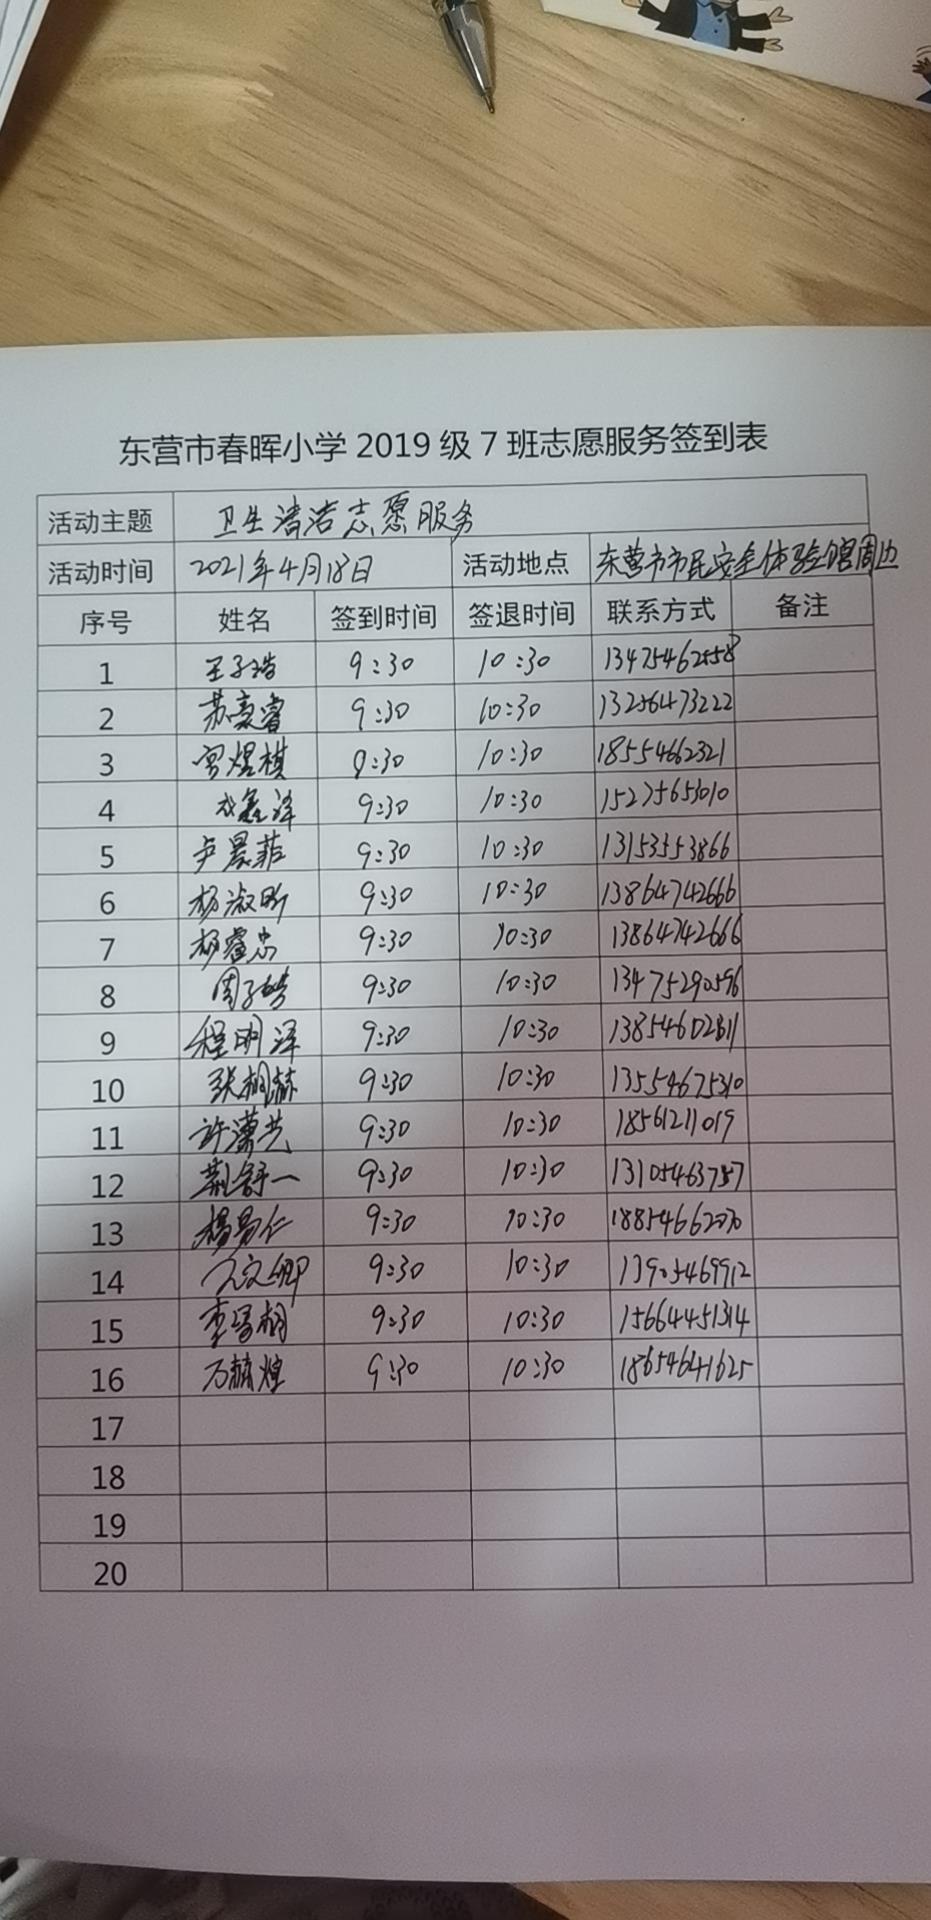 东营市春晖小学 2019 级 7 班志愿服务签到表
活动主题 卫生清洁志愿服务
活动时间 2021年4月18日 活动地点 东营市市民安全体验馆周边
序号 姓名 签到时间 签退时间 联系方式 备注
1 王子浩 9:30 10:30 13475462558
2 苏豪睿 9:30 10:30 13256473222
3 宫煜棋 9:30 10:30 18554662321
4 鑫泽 9:30 10:30 15275653010
5 卢晨菲 9:30 10:30 13153553866
6 杨淑昕 9:30 10:30 13864742666
7 杨睿忠 9:30 10:30 13864742666
8 周子皓 9:30 10:30 13475290596
9 程明泽 9:30 10:30 13854602811
10 张栩赫 9:30 10:30 13554675310
11 许潇艺 9:30 10:30 18561211019
12 荆舒一 9:30 10:30
13 杨易仁 9:30 10:30
14 9:30 10:30 13905469912
15 李昱栩 9:30 10:30 15664451314
16 万赫煌 9:30 10:30 18654641625
17
18
19
20